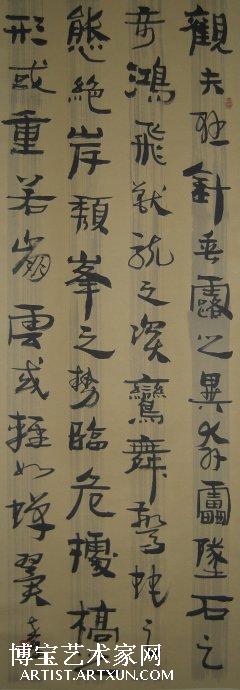 觀夫針垂露之異奔靁墜石之
奇鴻飛獸駭之資鸞舞驚蛇之
態絕岸頹峯之勢臨危據槁之
形或重若崩雲或輕如蟬翼
博宝艺术家网
ARTIST.ARTXUN.COM